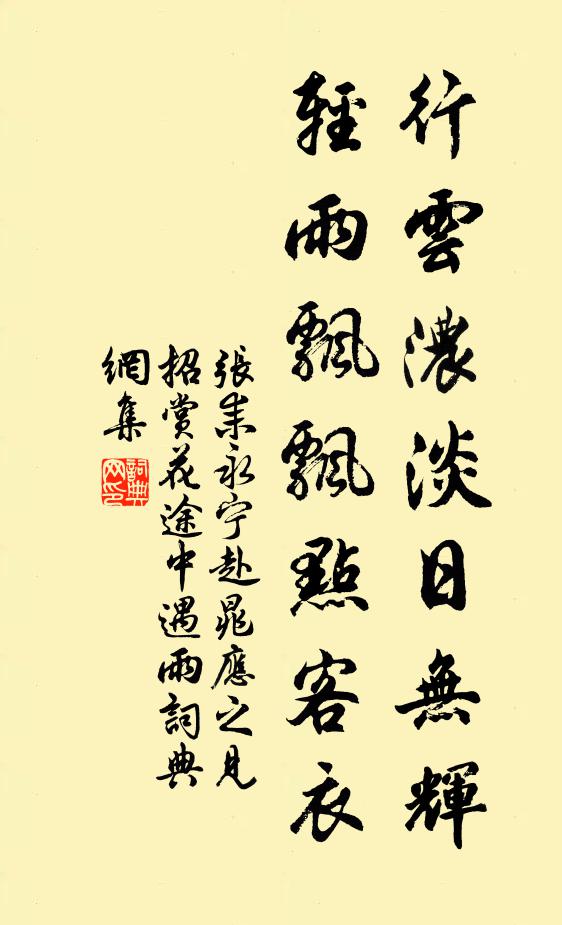 行雲濃淡日無輝
輕雨飄飄點客衣
張耒永宁赴晁應之見
招賞花途中遇雨詞典
網集
詞典
网印